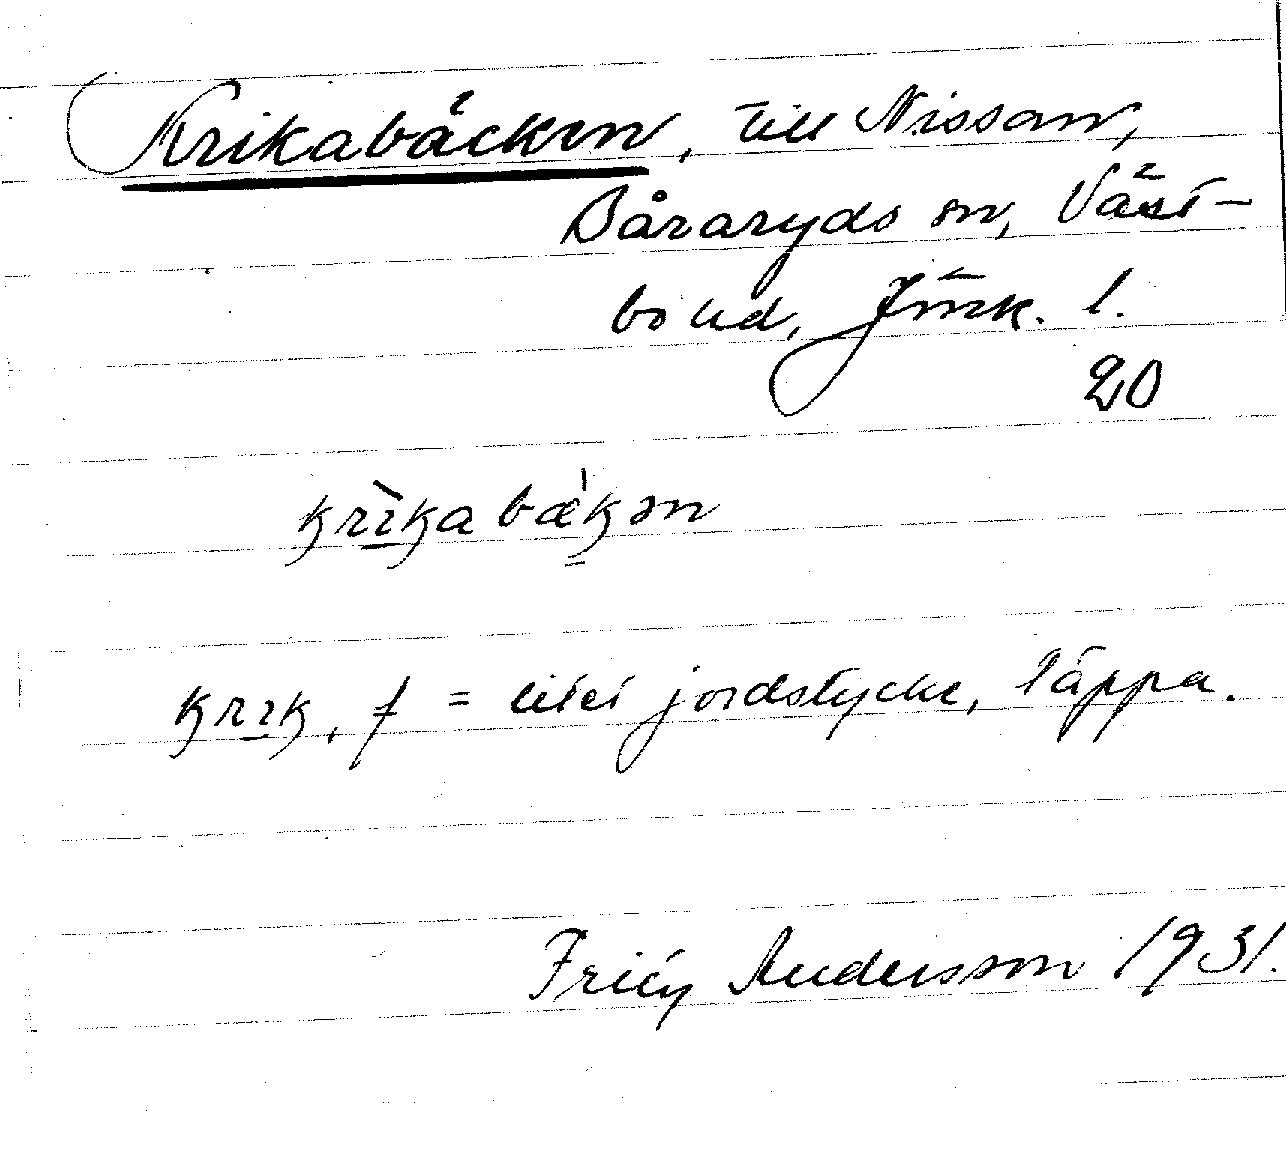 Krikabäcken, till Nissan,
Båraryds sn, Väst-
bo hd, Jönk. l.
20
krìkabækən
krık, f = litet jordstycke, täppa.
Andersson 1931.